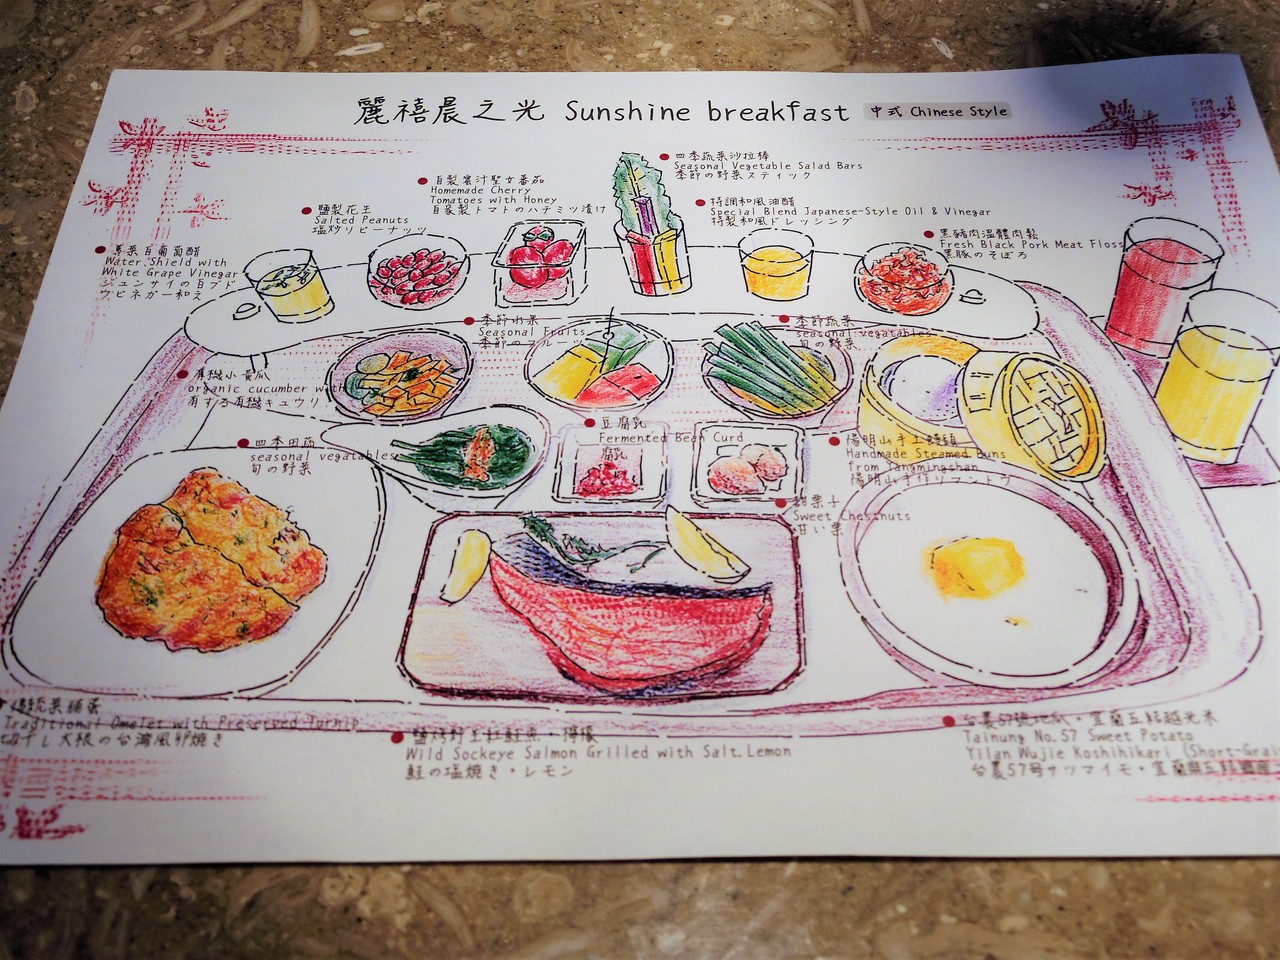 麗禧晨之光 Sunshine breakfast 中式 Chinese Style
四季蔬菜沙拉棒
Seasonal Vegetable Salad Bars
季節の野菜スティック
自製蜜汁聖女番茄
Homemade Cherry
Tomatoes with Honey
自家製トマトのハチミツ漬け
特調和風油醋
Special Blend Japanese-Style Oil & Vinegar
特製和風ドレッシング
鹽製花生
Salted Peanuts
塩炒りピーナッツ
黑豬肉溫體肉鬆
Fresh Black Pork Meat Floss
黒豚のそぼろ
蓴菜白葡萄醋
Water Shield with
White Grape Vinegar
ジュンサイの白ブド
ウビネガー和え
季節水果
Seasonal Fruits
季節のフルーツ
季節蔬菜
seasonal vegetables
旬の野菜
有機小黃瓜
organic cucumber with
有する有機キュウリ
豆腐乳
Fermented Bean Curd
腐乳
四季田蔬
seasonal vegetables
旬の野菜
陽明山手工饅頭
Handmade Steamed Buns
from Yangmingshan
陽明山手作りマントウ
甜栗子
Sweet Chestnuts
甘い栗
傳統菜脯蛋
Traditional Omelet with Preserved Turnip
干し大根の台湾風卵焼き
鹽烤野生紅鮭魚・檸檬
Wild Sockeye Salmon Grilled with Salt.Lemon
鮭の塩焼き・レモン
台農57號地瓜・宜蘭五結越光米
Tainung No.57 Sweet Potato
Yilan Wujie Koshihikari (Short-Grai
台農57号サツマイモ・宜蘭県五結郷産